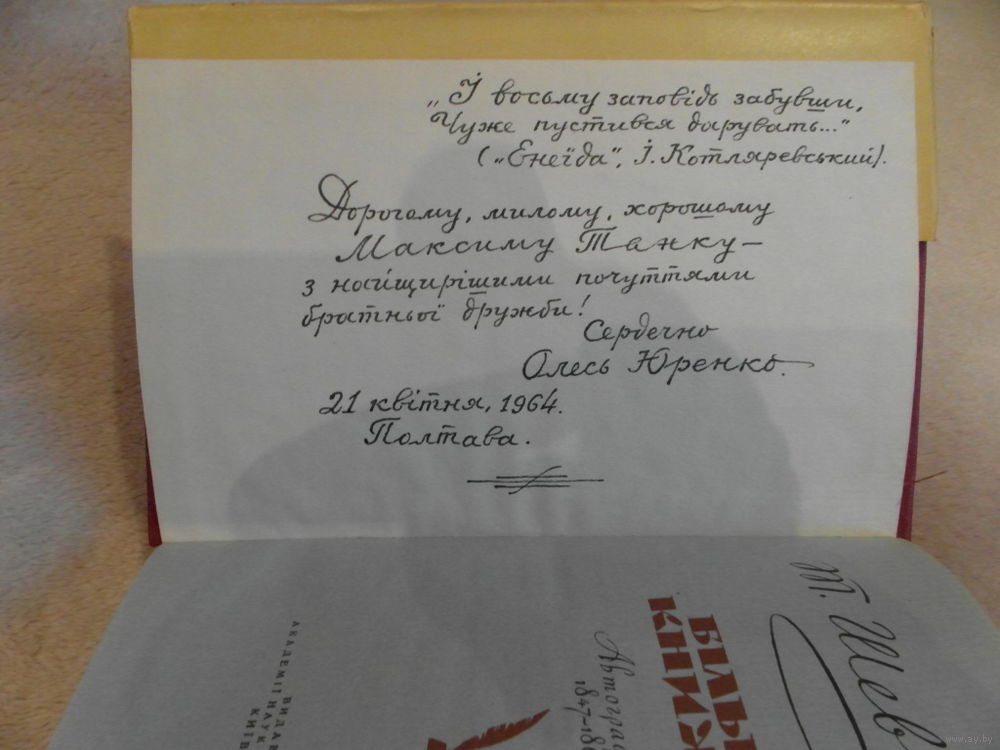 „І восьму заповідь забувши,
Чуже пустився дарувать..."
(„Енеїда", І. Котляревський).
Дорогому, милому, хорошому
Максиму Танку —
з найщирішими почуттями
братньої дружби!
Сердечно
Олесь Юренко.
21 квітня, 1964.
Полтава.
Т. Шев
БІЛЬ
КНИЖ
Автограф
1847-18
ВИДАВ
АКАДЕМІЇ НАУК
КИЇВ
www.ay.by